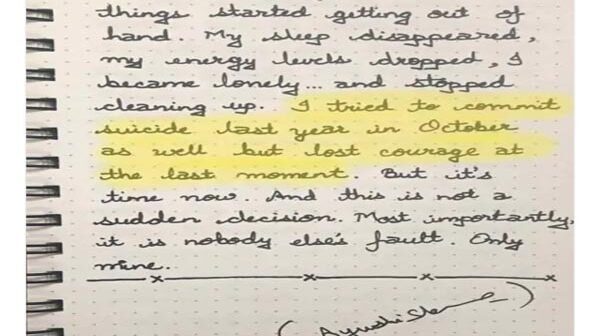 things started getting out of
hand. My sleep disappeared,
my energy levels dropped, I
became lonely... and stopped
cleaning up. I tried to commit
suicide last year in October
as well but lost courage at
the last moment. But it's
time now. And this is not a
sudden decision. Most importantly,
it is nobody else's fault. Only
mine.